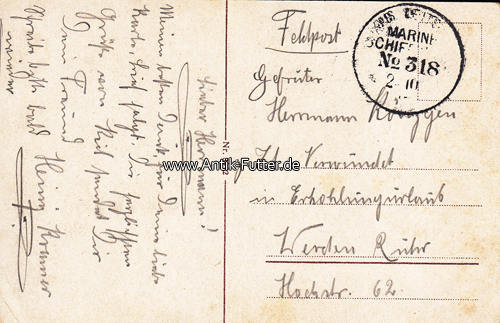 Lieber Hermann!
Meinen besten Dank für Deine liebe
Karte. Brief folgt. Die herzlichsten
Grüße von Kiel sendet Dir
Dein Freund
Heinr. Kremer
Schreibe bald
wieder
Feldpost
MARINE
SCHIFFS
No 318
2 10
Gefreiter
Herrmann
Verwundet
in Erhohlungsurlaub
Werden Ruhr
Hochstr. 62.
www.Antik-Futter.de
Nr.